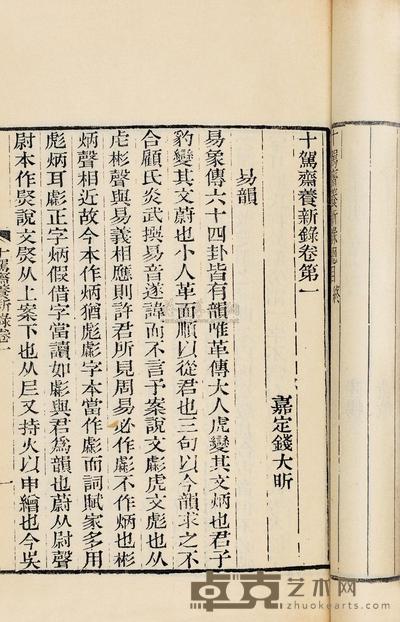 十駕齋養新錄卷第一
嘉定錢大昕
易韻
易象傳六十四卦皆有韻唯革傳大人虎變其文炳也君子
豹變其文蔚也小人革面順以從君也三句以今韻求之不
合顧氏炎武撰易音遂諱而不言予案說文虨虎文彪也从
虍彬聲與易義相應則許君所見周易必作虨不作炳也彬
炳聲相近故今本作炳猶彪虨字本當作虨而詞賦家多用
彪炳耳虨正字炳假借字當讀如虨與君為韻也蔚从尉聲
尉本作㷉說文㷉从上案下也从𡰥又持火以申繒也今吳
十駕齋養新錄卷一
一
卓克艺术网
www.zhuokearts.com